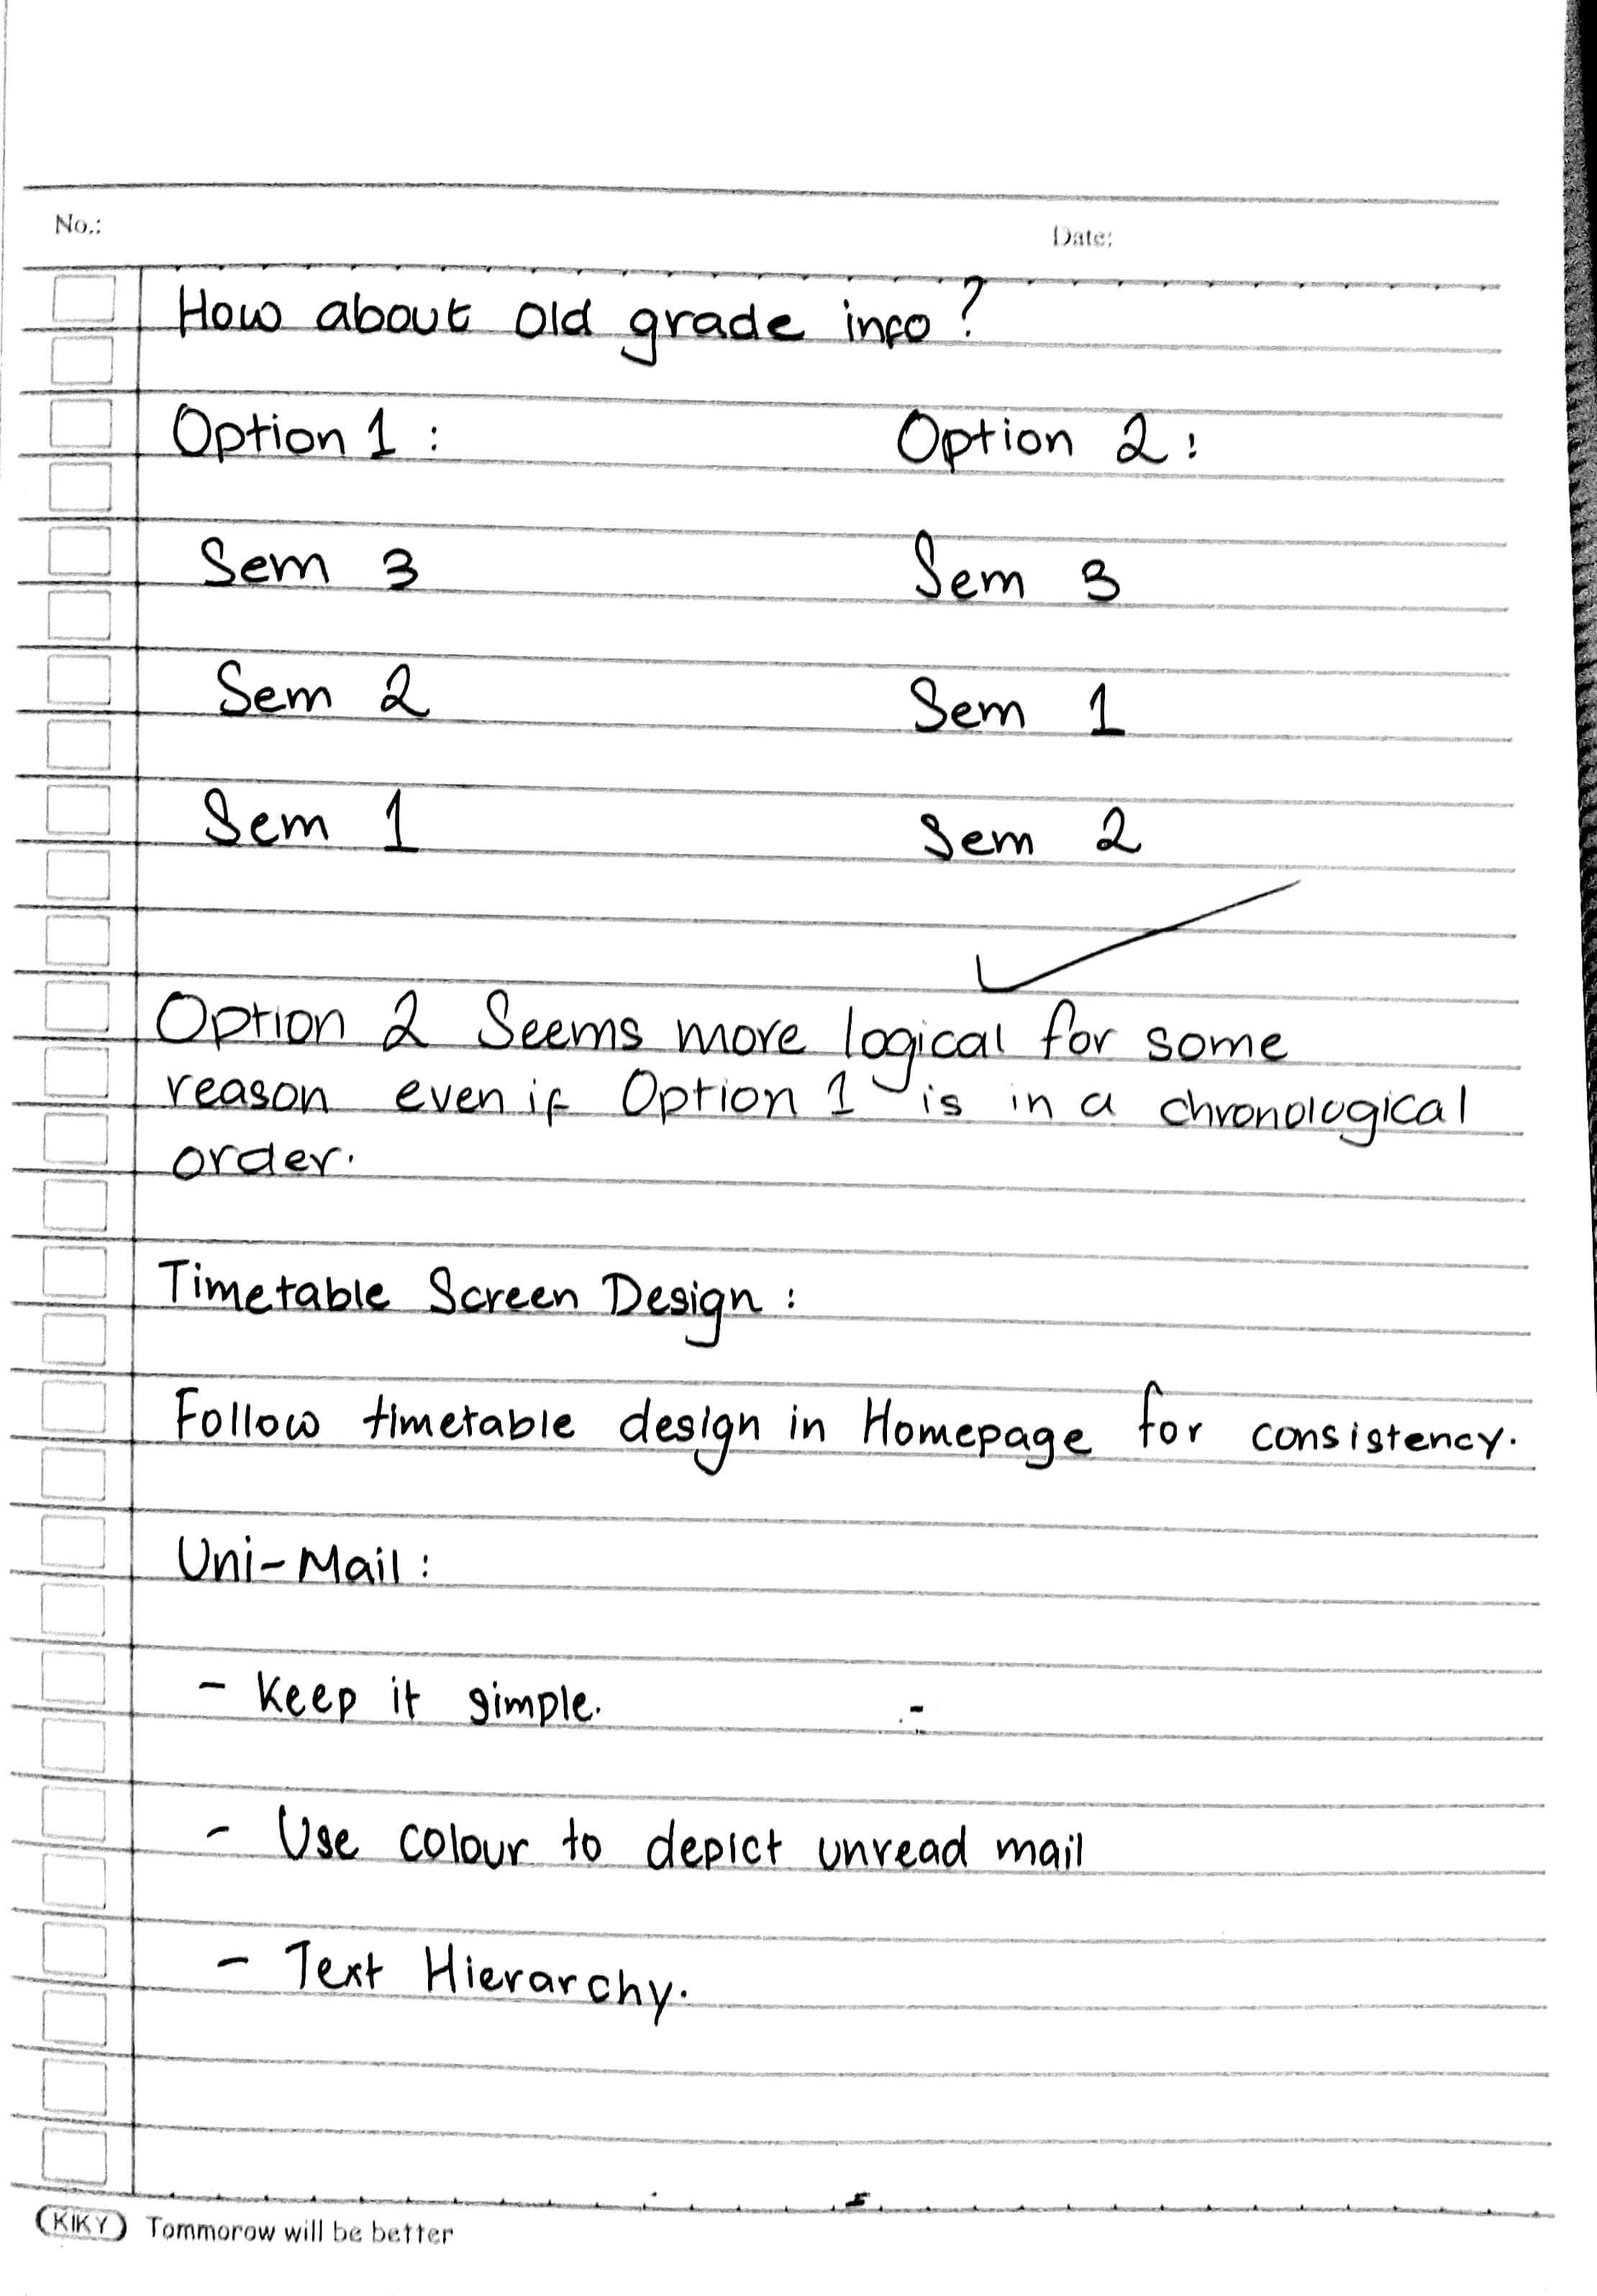 No.: Date:
How about old grade info?
Option 1 : Option 2 :
Sem 3 Sem 3
Sem 2 Sem 1
Sem 1 Sem 2
Option 2 Seems more logical for some
reason even if Option 1 is in a chronological
order.
Timetable Screen Design :
Follow timetable design in Homepage for consistency.
Uni-Mail :
- Keep it simple.
- Use colour to depict unread mail
- Text Hierarchy.
KIKY Tommorow will be better